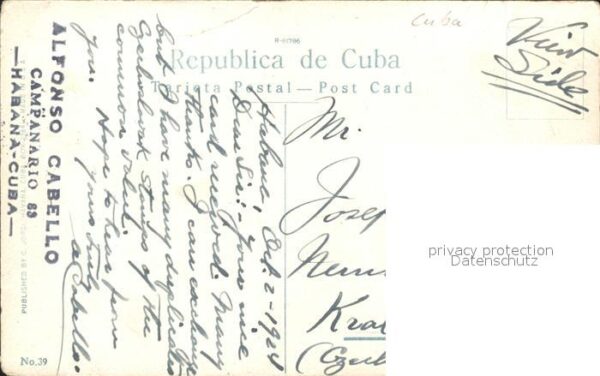 Cuba
R-61786
Republica de Cuba
Tarjeta Postal — Post Card
View
Side
ALFONSO CABELLO
CAMPANARIO 83
—HABANA-CUBA—
Habana, Oct. 2-1924
Dear Sir:- Yours nice
card received. Many
thanks. I can exchange
but I have many duplicates
Czechoslovak stamps of the
common values.
Hope to hear from
you. Yours truly
A. Cabello.
Mr.
Josep
Nem
Kra
(Czech
No. 39
privacy protection
Datenschutz